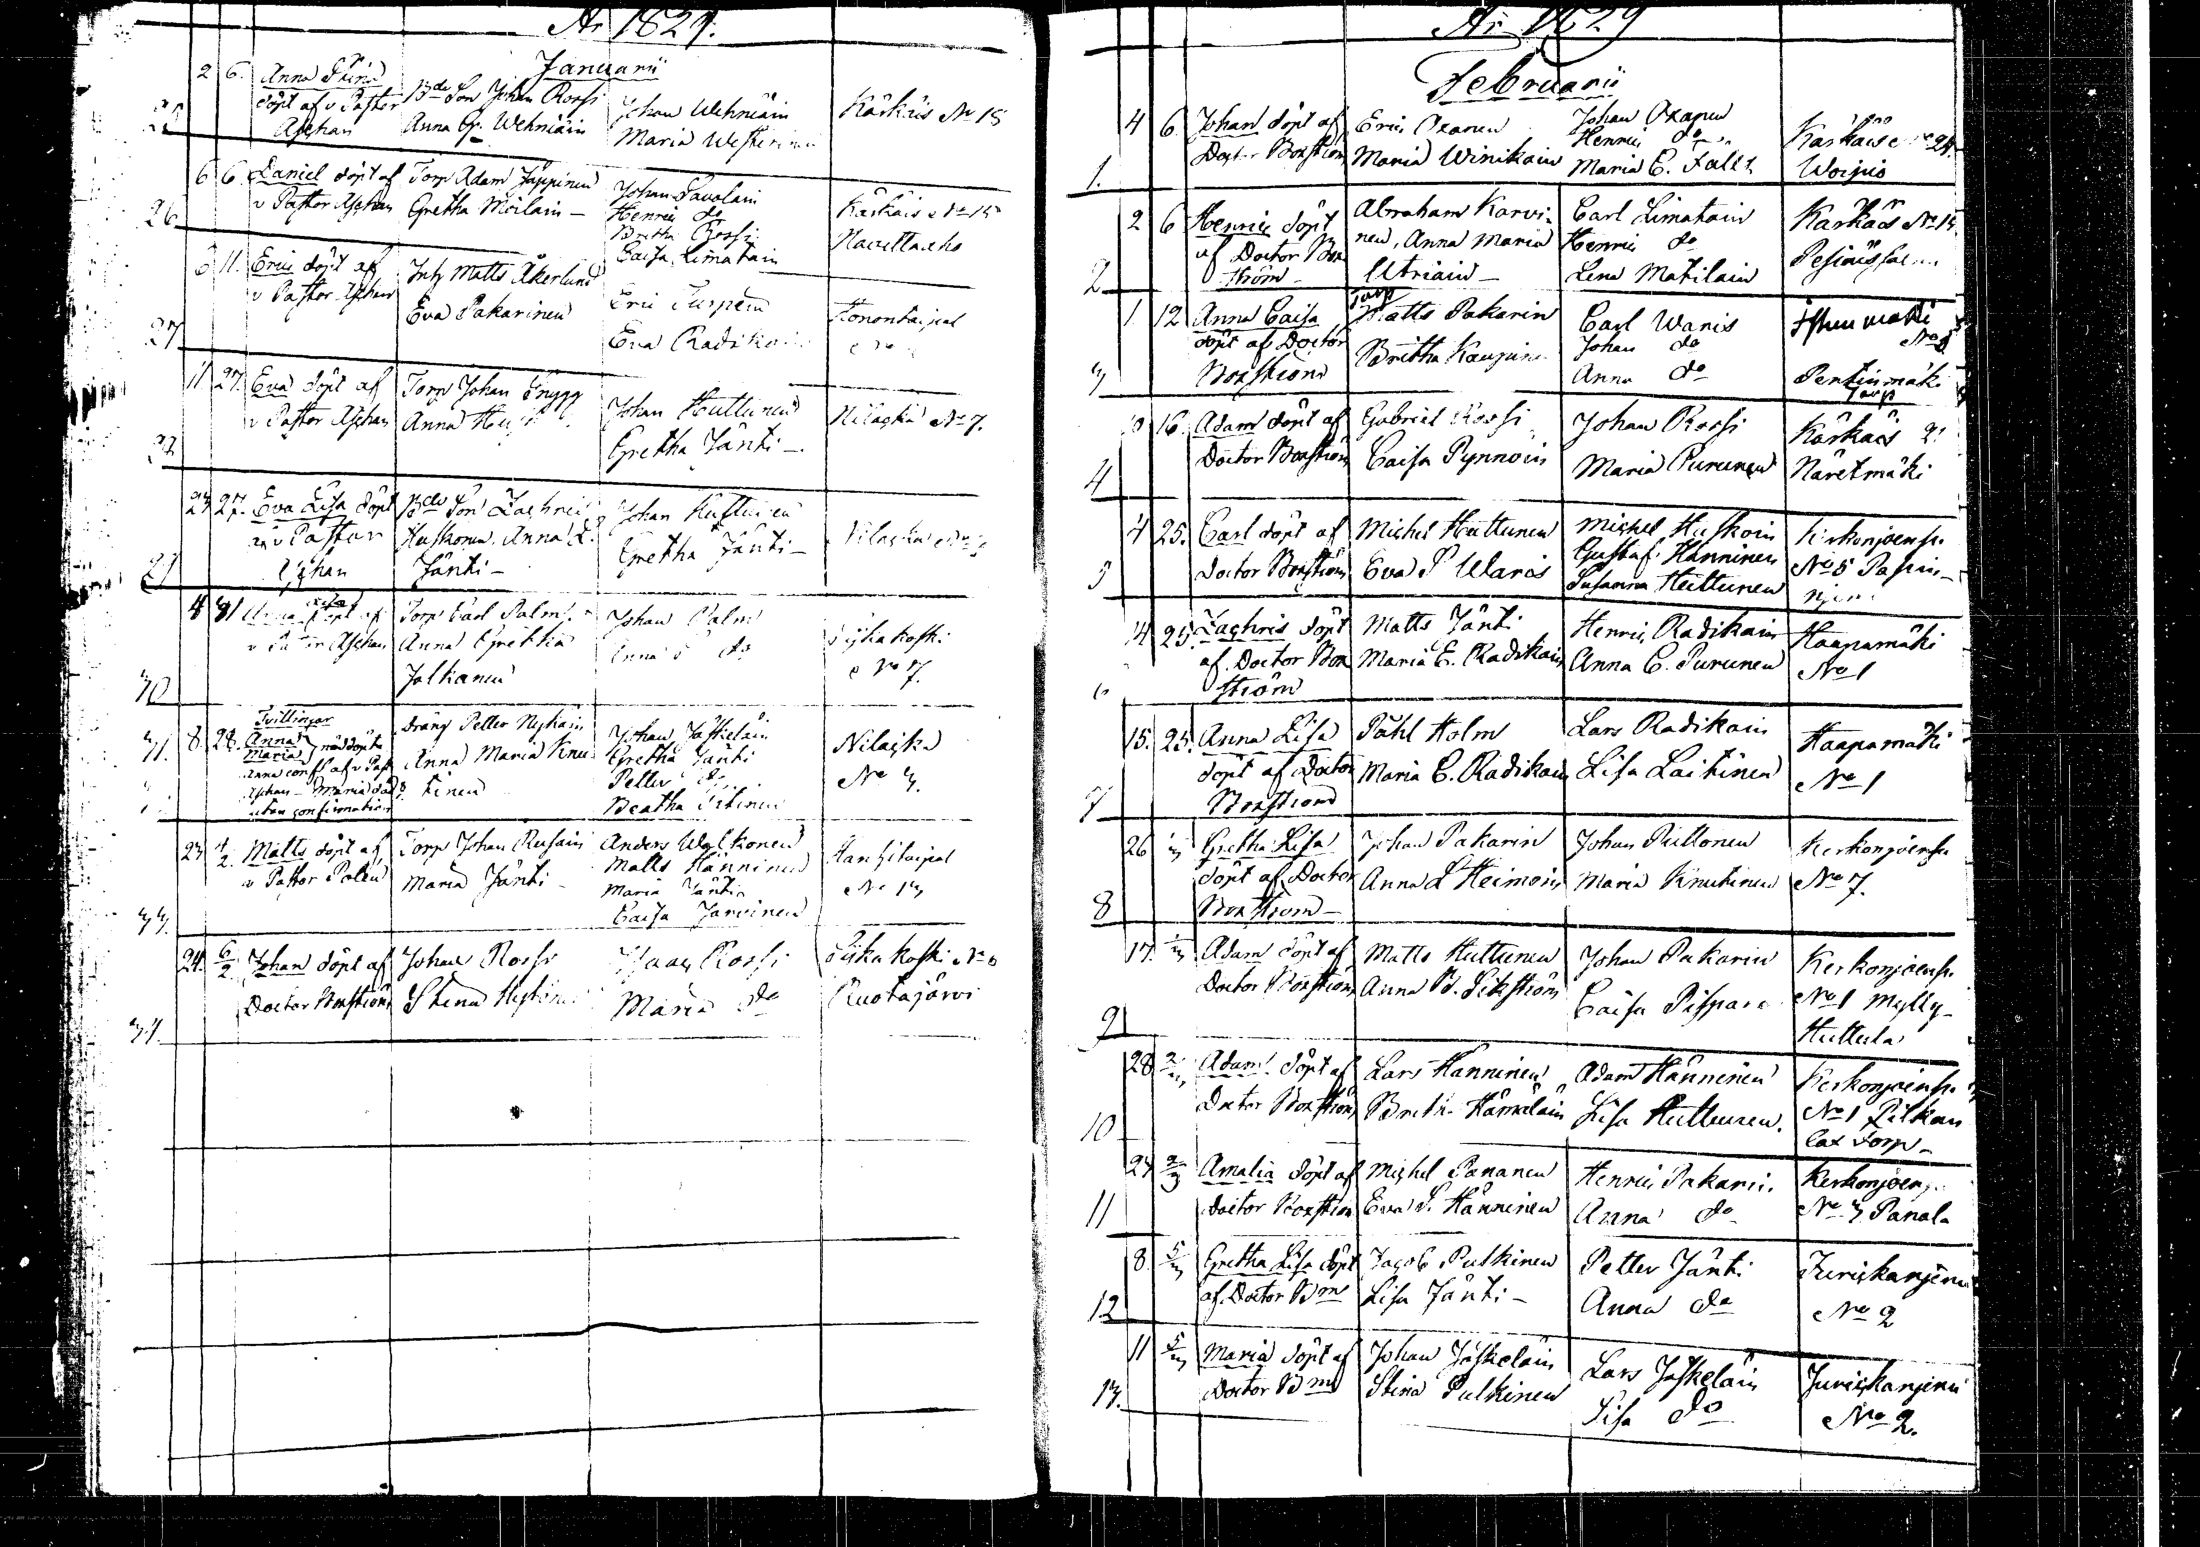 År 1829.
Januarii
25
2 6. Anna Stina
döpt af v Pastor
Aschan
Bde Son Johan Rossi
Anna Gr. Wehniäin
Johan Wehniäin
Maria Westerinen
Kärkäis No 15
26
6 6 Daniel döpt af
v Pastor Aschan
Torp Adam Jäppinen
Gretha Moilain
Johan Pavolain
Henric do
Britha Rossi
Caisa Limatain
Kärkäis No 15
27
11. Eric döpt af
v Pastor Aschan
Inh Matts Åkerlund
Eva Pakarinen
Eric Turpein
Eva Radikain
Kononkaipal
11 27. Eva döpt af
v Pastor Aschan
Torp Johan Snygg
Anna
Johan Huttunen
Gretha Jänti
Nilaskä No 7.
27. Eva Lisa döpt
af v Pastor
Aschan
Bde Son Zachris
Huskonen, Anna L.
Jänti
Johan Huttunen
Gretha Jänti
30
döpt af
v Pastor Aschan
Torp Carl Palm
Anna Gretha
Jolkanen
Johan Palm
Anna do
Syhakoski
No 7.
31. 8. 28.
Tvillingar
Anna
Maria nöddöpte
Anna conf af v Past
Aschan - Maria död
utan confirmation
Dräng Petter Nykäin
Anna Maria Knu
tinen
Johan Jäskeläin
Gretha Jänti
Petter do
Beatha
Nilaskä
No 3.
33.
23 4/2. Matts döpt af
v Pastor Polén
Torp Johan Rusain
Maria Jänti
Anders Walkonen
Matts Hänninen
Maria Jänti
Caisa Jarvinen
Hankitaipal
No 13
34.
24. 6/2 Johan döpt af
Doctor Boxström
Johan Rossi
Stina
Isaac Rossi
Maria do
Syhakoski No 6
Ruotajärvi
År 1829
Februarii
1.
4 6. Johan döpt af
Doctor Boxström
Eric Oxanen
Maria Winikain
Johan Oxanen
Henric do
Maria E. Falck
Kärkäis No 24.
Woipio
2
2 6 Henric döpt
af Doctor Box
ström
Abraham Karvi
nen, Anna Maria
Utriain
Carl Limatain
Henric do
Lena Matilain
Kärkäis No 15
3
1 12 Anna Caisa
döpt af Doctor
Boxström
Torp
Matts Pakarin
Britha Kaupin
Carl Waris
Johan do
Anna do
Istunmäki
No 3
Penkinmäki
Torp
4
16. Adam döpt af
Doctor Boxström
Gabriel Rossi
Caisa Pynnöin
Johan Rossi
Maria Purunen
Kärkäis 2
Näretmäki
5
4 25. Carl döpt af
Doctor Boxström
Michel Huttunen
Eva S Waris
Michel Huskoin
Gustaf Hänninen
Susanna Huttunen
Kerkonjoensu
No 5
6
4 25. Zachris döpt
af Doctor Box
ström
Matts Jänti
Maria E. Radikain
Henric Radikain
Anna C. Purunen
Haapamäki
No 1
7
15. 25. Anna Lisa
döpt af Doctor
Boxström
Påhl Holm
Maria C. Radikain
Lars Radikain
Lisa Laitinen
Haapamäki
No 1
8
26 1/3 Gretha Lisa
döpt af Doctor
Boxström
Johan Pakarin
Anna L Heimoin
Johan Puttonen
Maria Knutinen
Kerkonjoensu
No 7.
9
17. 1/3 Adam döpt af
Doctor Boxström
Matts Huttunen
Anna B. Sikström
Johan Pakarin
Caisa Pispa
Kerkonjoensu
No 1 Mylly
Huttula
10
28 2/3 Adam döpt af
Doctor Boxström
Lars Hänninen
Brita Hämäläin
Adam Hänninen
Lisa Huttunen.
Kerkonjoensu
No 1 Pitkän
lax Torp
11
24 2/3 Amalia döpt af
Doctor Boxström
Michel Pananen
Eva S. Hänninen
Henric Pakarin
Anna do
Kerkonjoen
No 3 Panala
12
8. 5/3 Gretha Lisa döpt
af Doctor Bm
Jacob Pulkinen
Lisa Jänti
Petter Jänti
Anna do
Jurickanjemi
No 2
13.
11 5/3 Maria döpt af
Doctor Bm
Johan Jäskeläin
Stina Pulkinen
Lars Jäskeläin
Lisa do
Jurickanjemi
No 2.